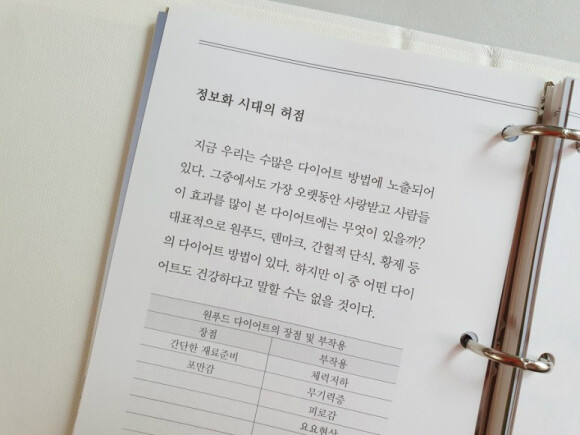 정보화 시대의 허점
지금 우리는 수많은 다이어트 방법에 노출되어
있다. 그중에서도 가장 오랫동안 사랑받고 사람들
이 효과를 많이 본 다이어트에는 무엇이 있을까?
대표적으로 원푸드, 덴마크, 간헐적 단식, 황제 등
의 다이어트 방법이 있다. 하지만 이 중 어떤 다이
어트도 건강하다고 말할 수는 없을 것이다.
원푸드 다이어트의 장점 및 부작용
장점 부작용
간단한 재료준비 체력저하
포만감 무기력증
피로감
요요현상